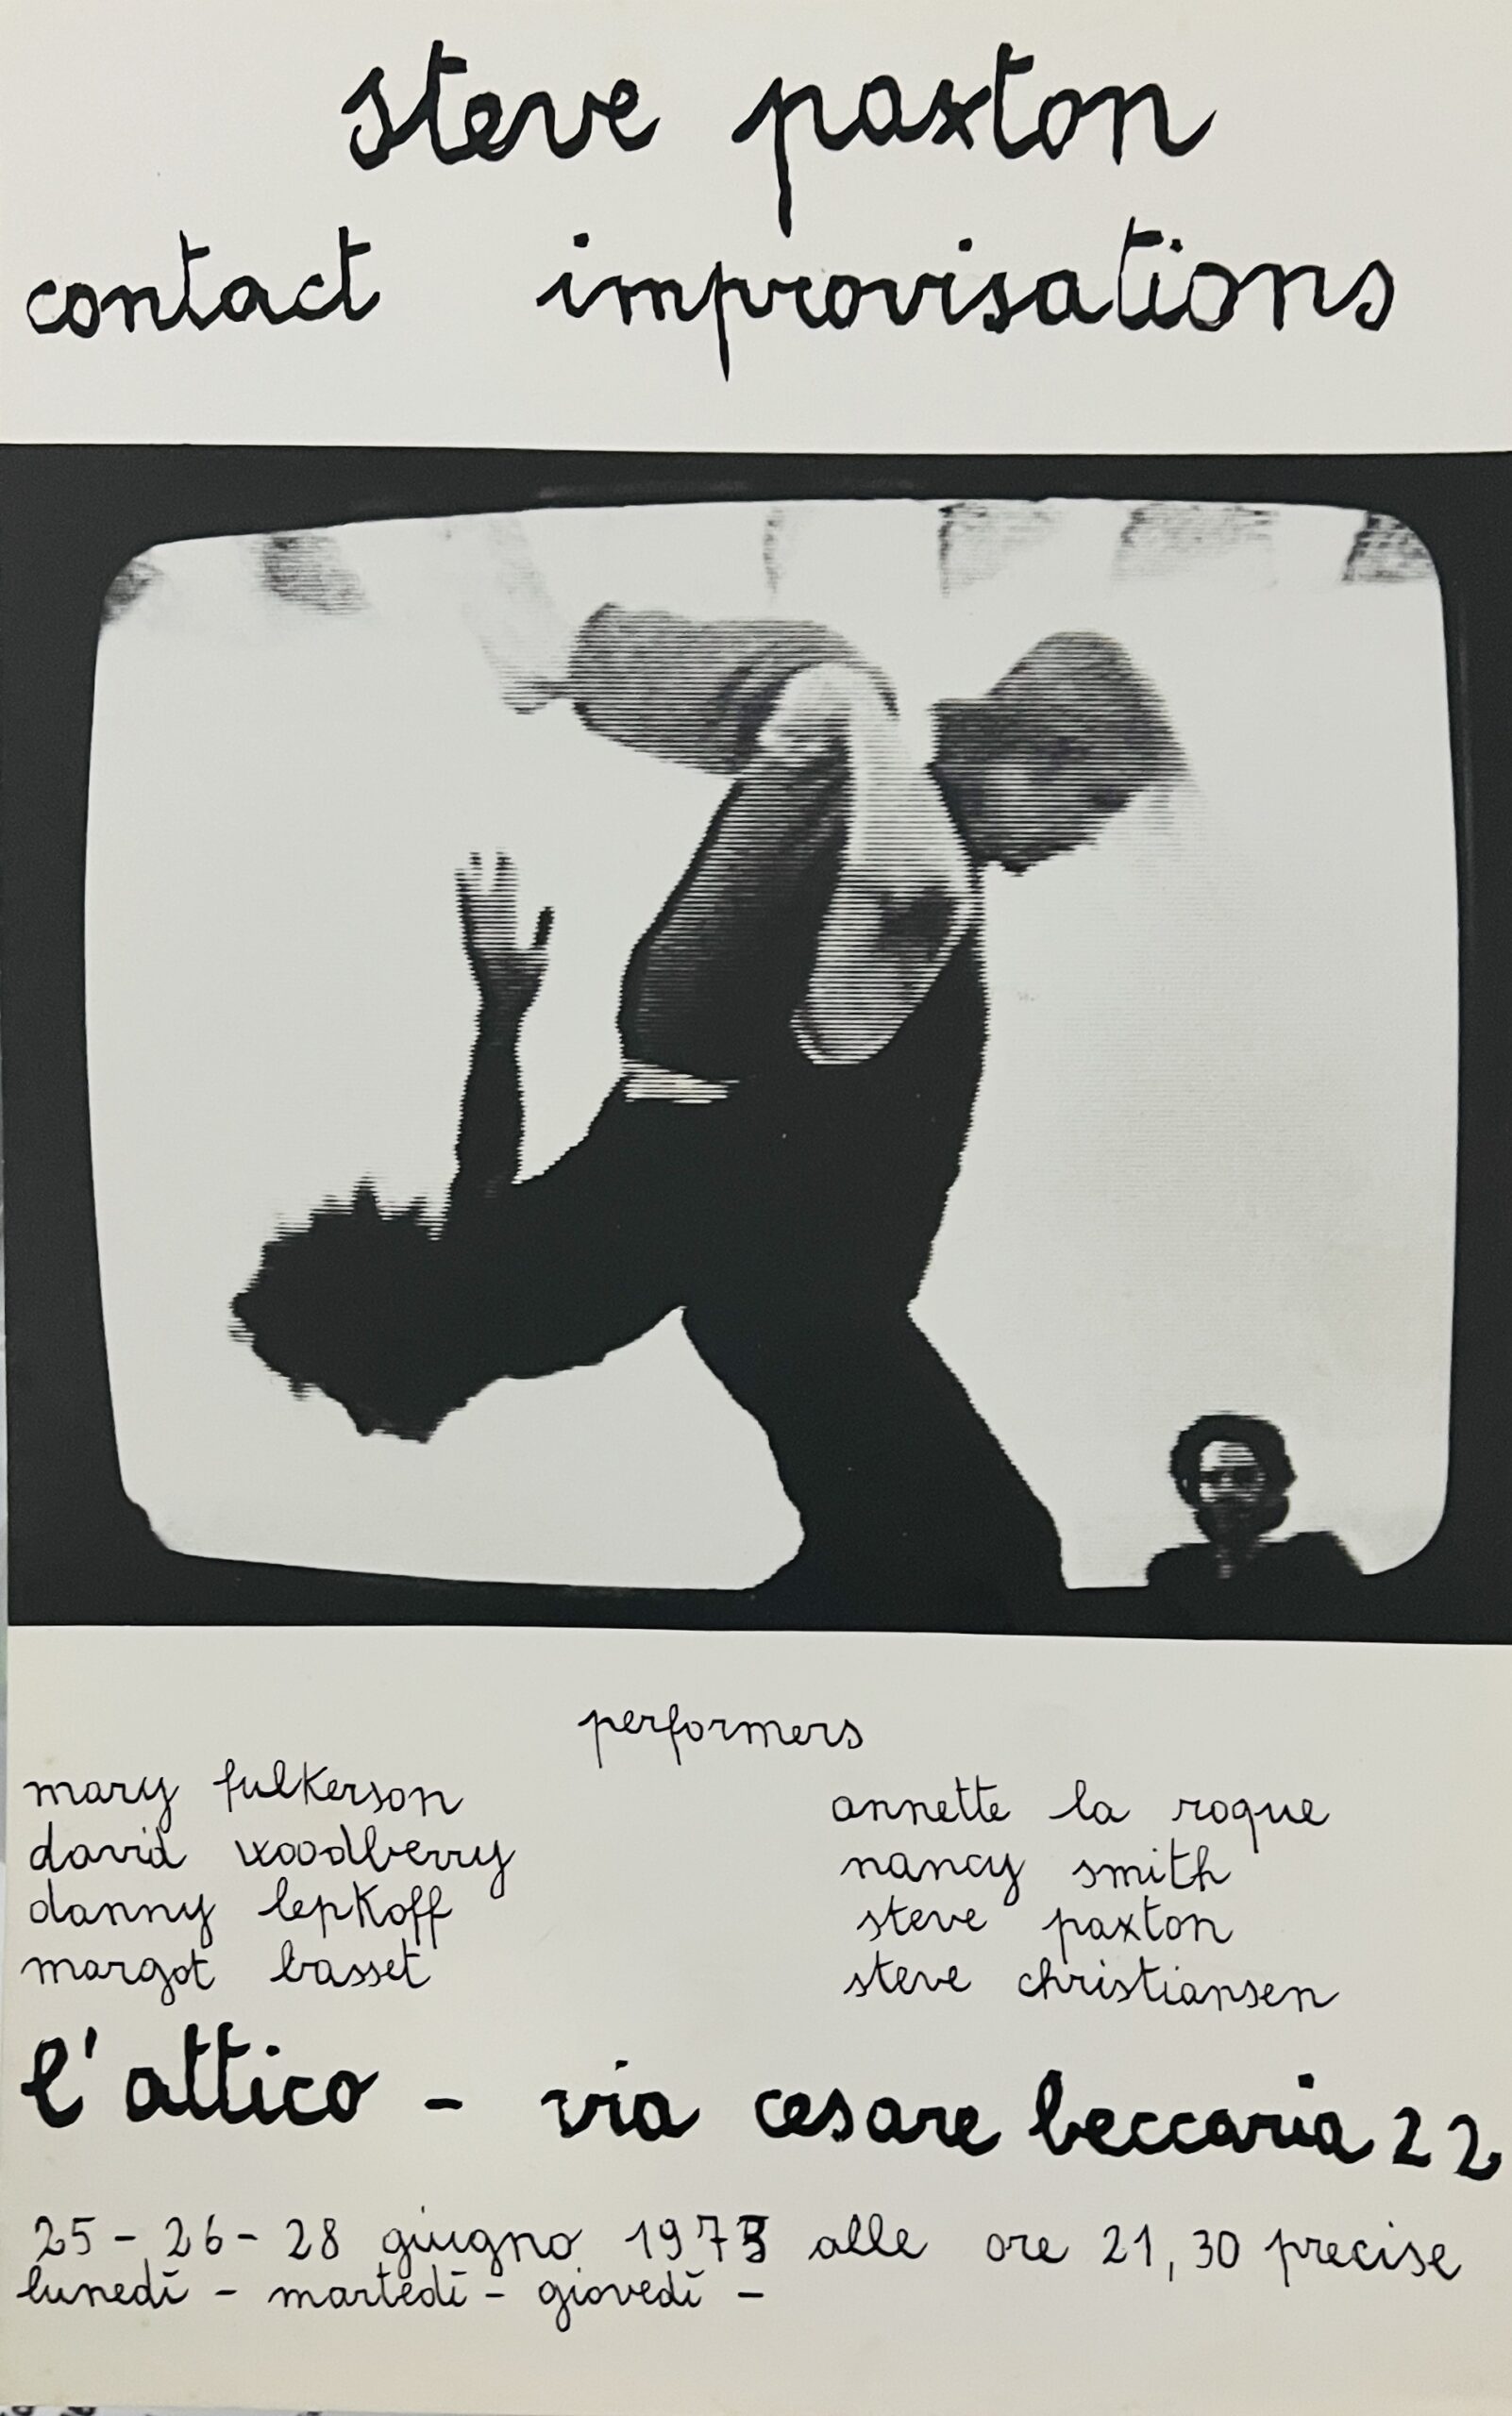 steve paxton
contact improvisations
performers
mary fulkerson
david woodberry
danny lepkoff
margot basset
annette la roque
nancy smith
steve paxton
steve christiansen
l'attico - via cesare beccaria 22
25 - 26 - 28 giugno 1973 alle ore 21,30 precise
lunedì - martedì - giovedì -